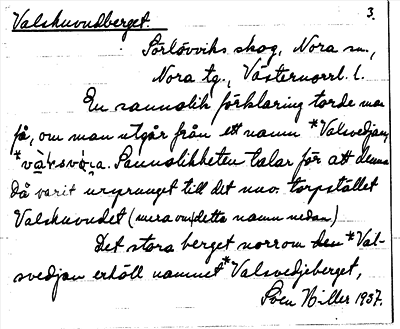 Valskuvudberget. 3.
Sörlövviks skog, Nora sn.,
Nora tg., Västernorrl. l.
En sannolik förklaring torde man
få, om man utgår från ett namn *Valsvedjan,
Sannolikheten talar för att denna
då varit ursprunget till det nuv. torpstället
Valskuvudet (mera om detta namn nedan)
Det stora berget norrom den *Val-
svedjan erhöll namnet *Valsvedjeberget,
Sven Hiller 1937.